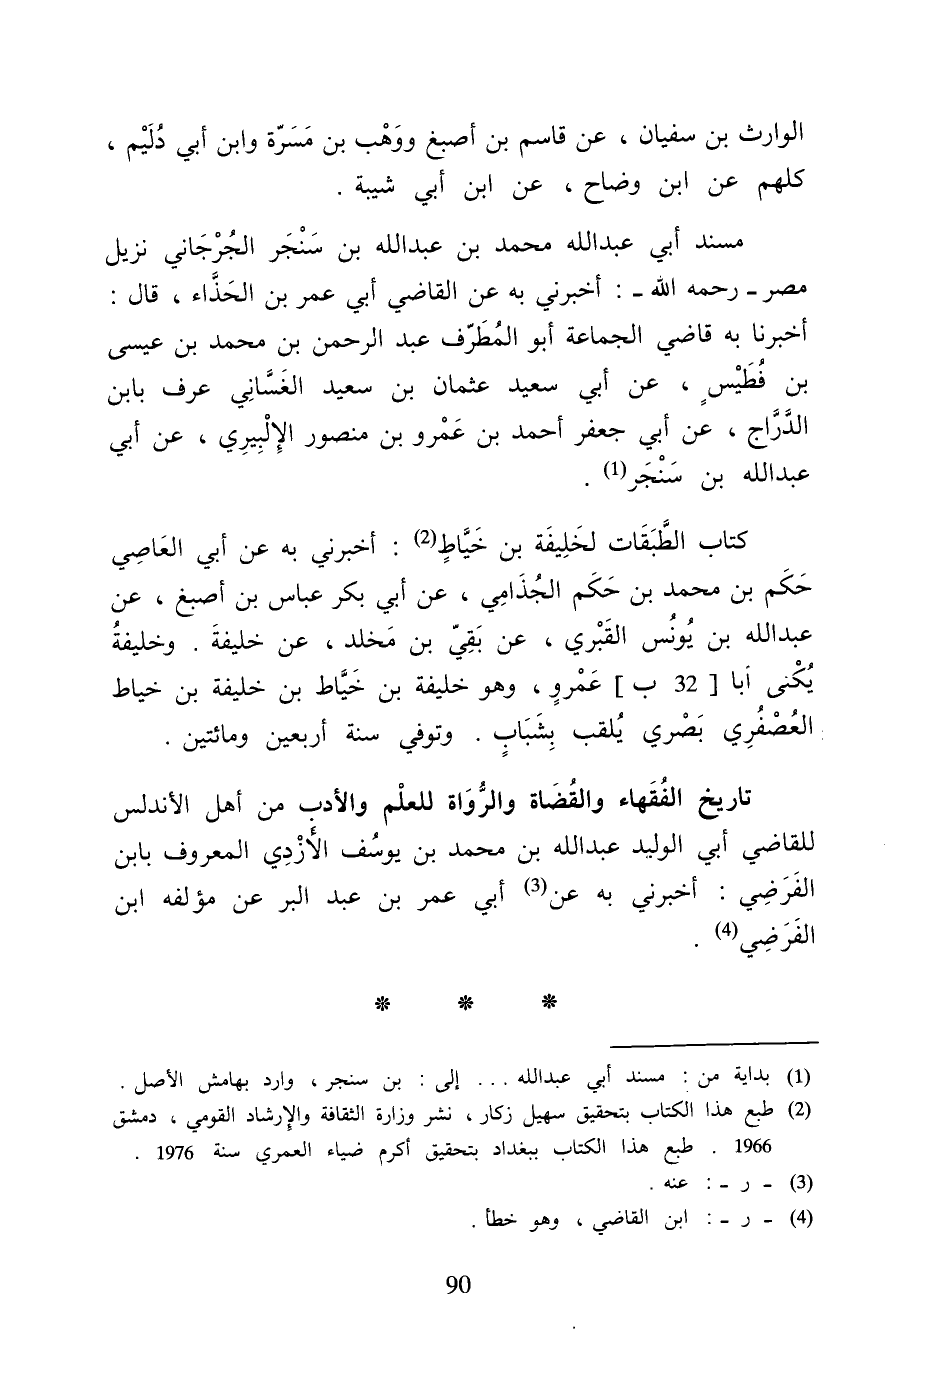 الوارث بن سفيان ، عن قاسم بن أصبغ ووَهْب بن مَسَرّة وابن أبي دُلَيْم ،
كلهم عن ابن وضاح ، عن ابن أبي شيبة .
مسند أبي عبدالله محمد بن عبدالله بن سَنْجَر الجُرْجَاني نزيل
مصر ـ رحمه الله ـ : أخبرني به عن القاضي أبي عمر بن الحَذَّاء ، قال :
أخبرنا به قاضي الجماعة أبو المُطَرّف عبد الرحمن بن محمد بن عيسى
بن فُطَيْسٍ ، عن أبي سعيد عثمان بن سعيد الغَسَّانِي عرف بابن
الدَّرَّاج ، عن أبي جعفر أحمد بن عَمْرو بن منصور الإِلْبِيرِي ، عن أبي
عبدالله بن سَنْجَر(1) .
كتاب الطَّبَقَات لخَلِيفَة بن خَيَّاطٍ(2) : أخبرني به عن أبي العَاصِي
حَكَم بن محمد بن حَكَم الجُذَامِي ، عن أبي بكر عباس بن أصبغ ، عن
عبدالله بن يُونُس القَبْري ، عن بَقِيّ بن مَخلد ، عن خليفةَ . وخليفةُ
يُكْنى أبا [ 32 ب ] عَمْروٍ ، وهو خليفة بن خَيَّاط بن خليفة بن خياط
العُصْفُرِي بَصْري يُلقب بِشَبَابٍ . وتوفي سنة أربعين ومائتين .
تاريخ الفُقَهاء والقُضَاة والرُّوَاة للعلْم والأدب من أهل الأندلس
للقاضي أبي الوليد عبدالله بن محمد بن يوسُف الأَزْدِي المعروف بابن
الفَرَضِي : أخبرني به عن(3) أبي عمر بن عبد البر عن مؤلفه ابن
الفَرَضِي(4) .
* * *
(1) بداية من : مسند أبي عبدالله ... إلى : بن سنجر ، وارد بهامش الأصل .
(2) طبع هذا الكتاب بتحقيق سهيل زكار ، نشر وزارة الثقافة والإرشاد القومي ، دمشق
1966 . طبع هذا الكتاب ببغداد بتحقيق أكرم ضياء العمري سنة 1976 .
(3) - ر - : عنه .
(4) - ر - : ابن القاضي ، وهو خطأ .
90